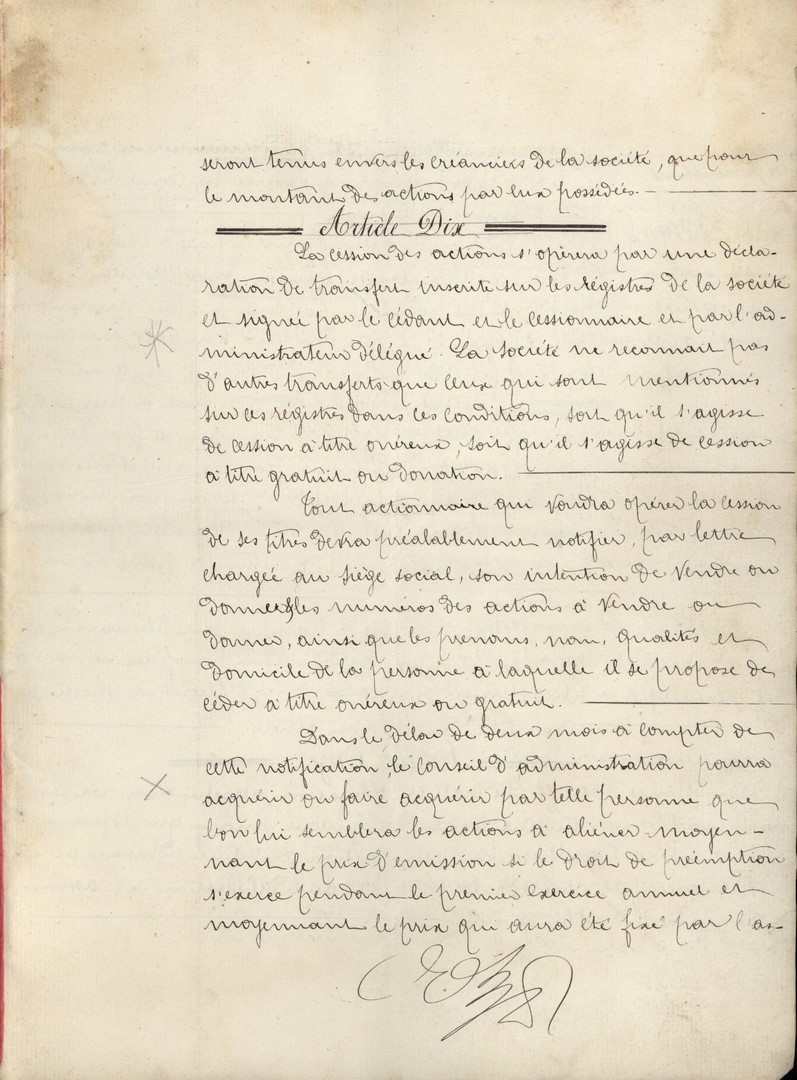 seront tenus envers les créanciers de la société, que pour
le montant des actions par eux possédées.
Article Dix
La cession des actions s'opèrera par une décla-
ration de transfert inscrite sur les régistres de la société
et signée par le cédant et le cessionnaire et par l'ad-
ministrateur délégué. La société ne reconnait pas
d'autres transferts que ceux qui sont mentionnés
sur ces régistres dans ces conditions, soit qu'il s'agisse
de cession à titre onéreux, soit qu'il s'agisse de cession
à titre gratuit ou donation.
Tout actionnaire qui voudra opérer la cession
de ses titres devra préalablement notifier, par lettre
chargée au siège social, son intention de vendre ou
donner, les numéros des actions à vendre ou
donner, ainsi que les prénoms, nom, qualités et
domicile de la personne à laquelle il se propose de
céder à titre onéreux ou gratuit.
Dans le délai de deux mois à compter de
cette notification, le conseil d'administration pourra
acquérir ou faire acquérir par telle personne que
bon lui semblera les actions à aliéner moyen-
nant le prix d'émission si le droit de préemption
s'exerce pendant le premier exercice annuel et
moyennant le prix qui aura été fixé par l'as-